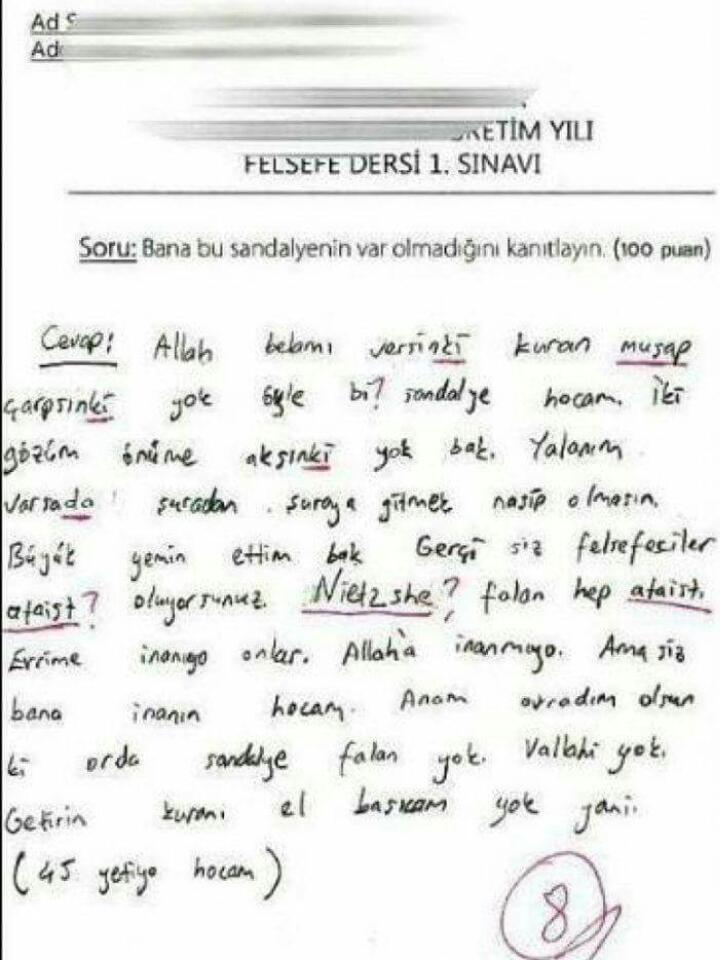 Ad S
Ad
RETİM YILI
FELSEFE DERSİ 1. SINAVI
Soru: Bana bu sandalyenin var olmadığını kanıtlayın. (100 puan)
Cevap: Allah belamı versinki kuran muşap
çarpsınki yok öyle bi? sandalye hocam. İki
gözüm önüme aksınki yok bak. Yalanım
varsada şuradan şuraya gitmek nasip olmasın.
Büyük yemin ettim bak Gerçi siz felsefeciler
ataist? oluyorsunuz. Nietzshe? falan hep ataist.
Evrime inanıyo onlar. Allah'a inanmıyo. Ama siz
bana inanın hocam. Anam avradım olsun
ki orda sandalye falan yok. Vallahi yok.
Getirin kuranı el basıcam yok yani.
(45 yetiyo hocam)
8